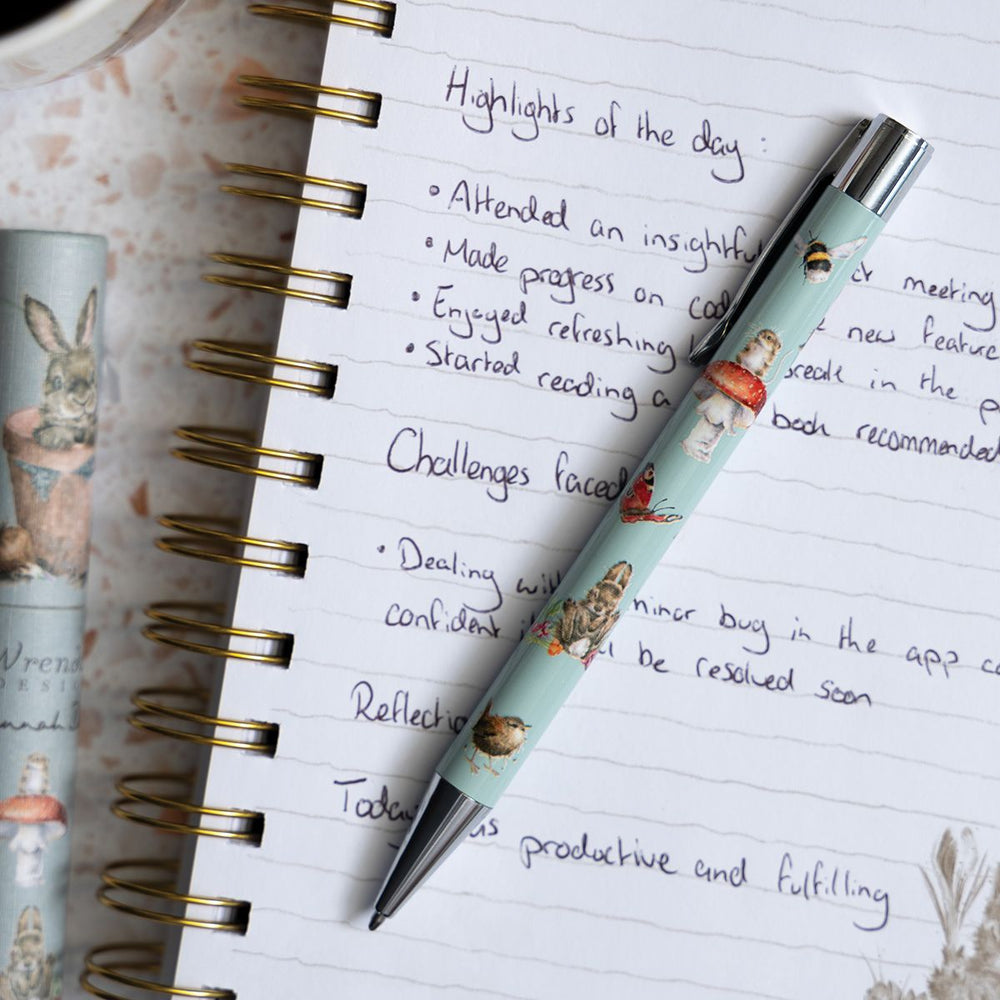 Highlights of the day :
• Attended an insightfu ck meeting
• Made progress on cod new feature
• Enjoyed refreshing break in the p
• Started reading a book recommended
Challenges faced
• Dealing with minor bug in the app
confident be resolved soon
Reflectio
Today as productive and fulfilling
Wren
DESI
nnah D